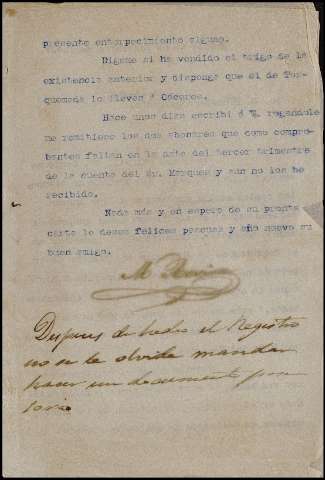 presente entorpecimiento alguno.
Dígame si ha vendido el trigo de la
existencia anterior y disponga que el de Tor-
quemada lo lleven á
Hace unos dias escribí á V. rogandole
me remitiese los dos abonares que como compro-
bantes faltan en la data del tercer trimestre
de la cuenta del Sr. Marques y aun no los he
recibido.
Nada más y en espera de su pronta
carta le desea felices pascuas y año nuevo su
buen amigo.
M
Despues de hecho el Registro
no se le olvide mandar
hacer un documento